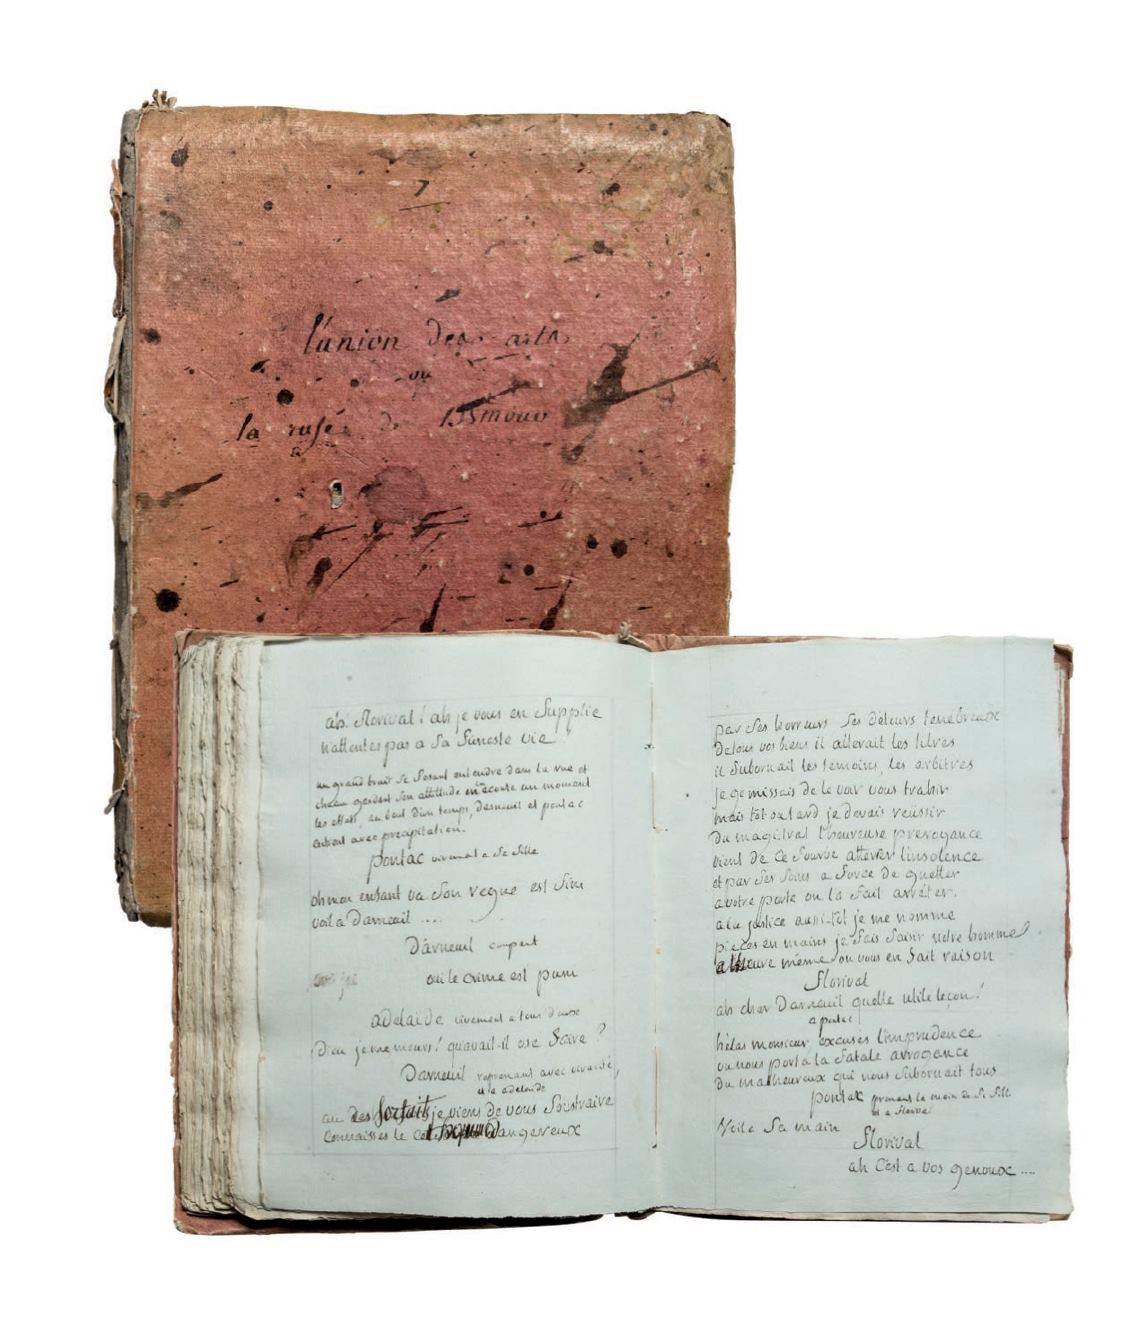 7
l'union des arts
ou
la ruse de
ah! florival! ah je vous en supplie
n'attentes pas a sa funeste vie!
un grand bruit se fesant entendre dans la rue et
chacun gardent son attitude en écoute un moment
les effets, au bout d'un temps, darneuil et pontac
entrent avec precipitation.
pontac vivement a sa fille
oh mon enfant va son regne est fini
voila Darneuil ....
Darneuil coupant
oui le crime est puni
adelaide vivement a tous deux
Dieu je me meurs! qu'avait-il osé faire?
Darneuil reprenant avec vivacité,
et a adelaide
au des forfaits je viens de vous soustraire
connaisses le dangereux
par ses horreurs ses détours tenebreux
de tous vos biens il alterait les titres
il subornait les temoins, les arbitres
je gemissais de le voir vous trahir
mais tôt ou tard je devais reüssir
du magistrat l'heureuse prevoyance
vient de ce fourbe atterer l'insolence
et par ses soins a force de guetter
a votre porte on la fait arrêter.
a la justice aussi-tôt je me nomme
pieces en mains je fais saisir notre homme
a l'heure même on vous en fait raison
florival
ah cher Darneuil quelle utile leçon!
a pontac
hélas monsieur excuses l'imprudence
ou nous porta la fatale arrogance
du malheureux qui nous subornait tous
pontac prenant la main de sa fille
et a florival
voila sa main
florival
ah c'est a vos genoux ....